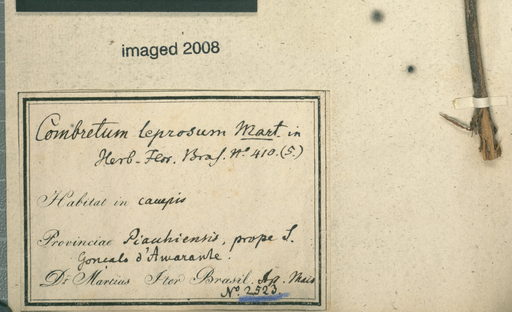 imaged 2008
Combretum leprosum Mart. in
Herb. Flor. Bras. No. 410. (5.)
Habitat in campis
Provinciae Piauhiensis, prope S.
Goncalo d'Amarante.
Dr. Martius Iter Brasil. Ap. Maio
No. 2523.